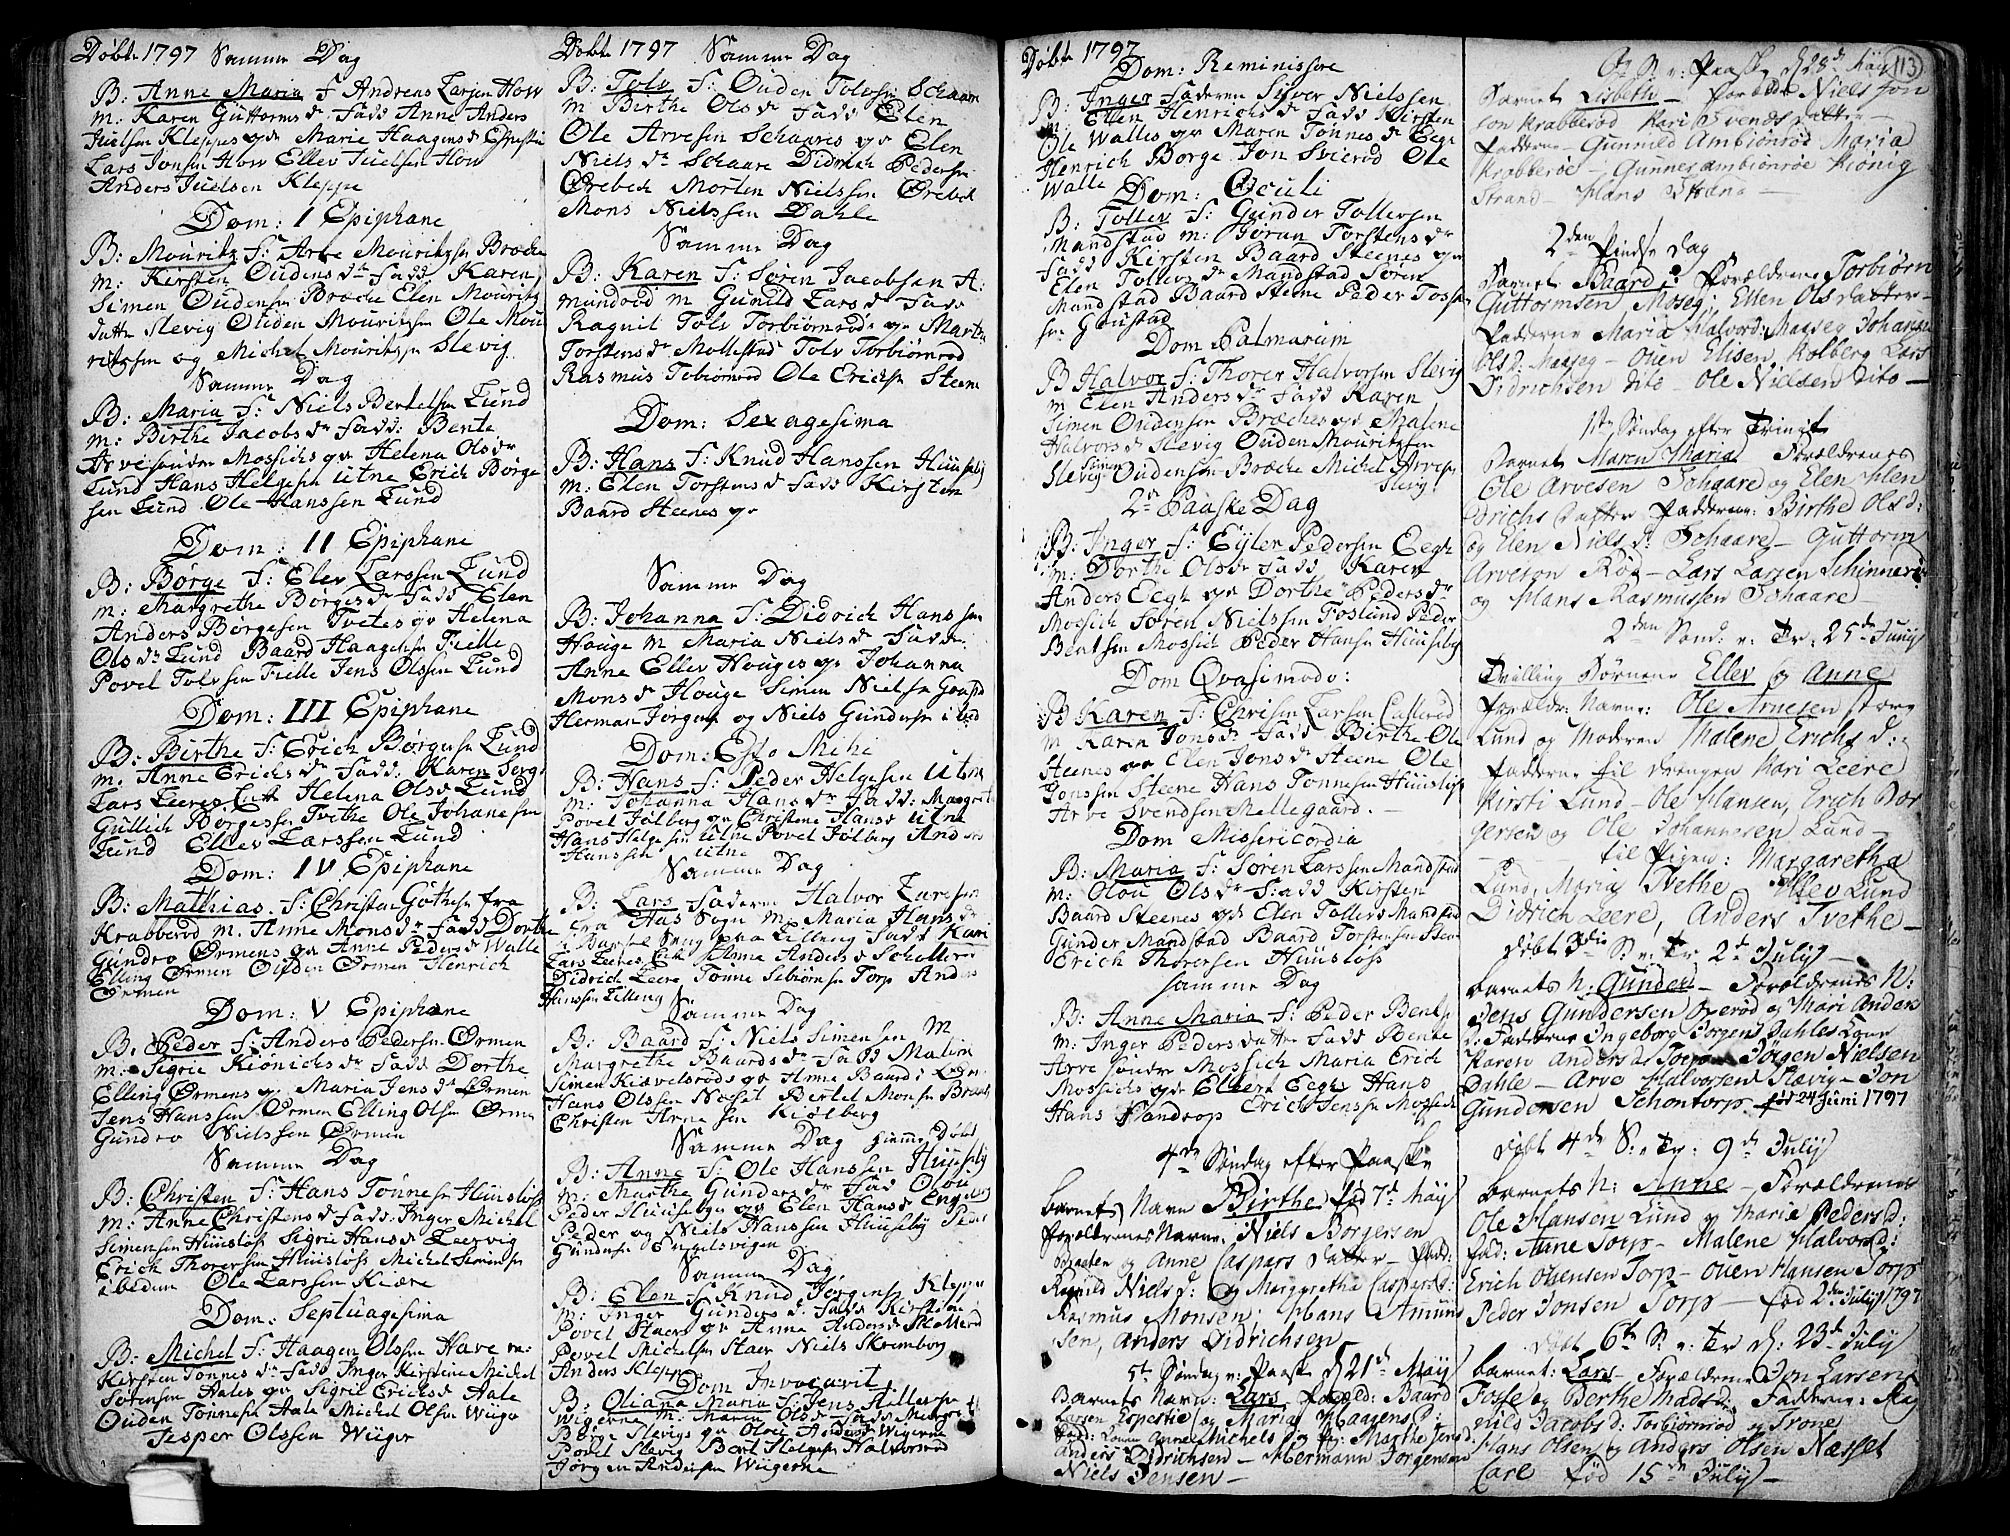 Døbte 1797 Samme Dag
B: Anne Maria F Andreas Larsen How
m: Karen Guttorms dr Fadd Anne Anders
Juelsen Kleppes qde Marie Haagens dr
Lars Jonsen How Ellev Juelsen How
Anders Juelsen Kleppe
Dom: I Epiphane
B: Mouritz F: Arve Mouritzsen Bræche
m: Kirsten Oudens dr Fadd Karen
Simen Oudensen Bræche Elen Mouritz
datter Slevig Ouden Mouritsen Ole Mou
ritzsen og Michel Mouritzsen Slevig
Samme Dag
B: Maria F: Niels Bertelsen Lund
m: Birthe Jacobs dr Fadd: Bente
Arvesønder Mossichs qv Helena Ols dr
Lund Hans Helgesen Utne Erich Børge
sen Lund Ole Hanssen Lund
Dom: II Epiphane
B: Børge F: Elev Larssen Lund
m: Margrethe Børges dr Fadd Elen
Anders Børgesen Tvetes qv Helena
Ols dr Lund Baard Haagensen Fielle
Povel Tolvsen Fielle Jens Olssen Lund
Dom: III Epiphane
B: Birthe F: Erich Børgesen Lund
m. Anne Erichs dr Fadd: Karen
Lars Leeres Helena Ols dr Lund
Gullich Børgessen Tvethe Ole Johanesen
Lund Ellev Larssen Lund
Dom: IV Epiphane
B: Mathias F: Christen Gøthesen fra
Krabberød m. Anne Mons dr Fadd Dorthe
Gundro Ormens qv Anne Peders dr Walle
Elling Ørmen Ørmen Henrich
Ørmen
Dom: V Epiphane
B. Peder F: Anders Pedersen Ørmen
m: Sigrie Kiønichs dr Fadd Dorthe
Elling Ørmens og Maria Jens dr Ørmen
Jens Hanssen Ørmen Elling Olsen Ørmen
Gundro Nielssen Ørmen
Samme Dag
B: Christen F: Hans Tønnesen Hüüsløss
m: Anne Christens dr Fadd: Inger Michel
Simensen Hüüsløss Sigrie Hans dr Leervig
Erich Thorersen Hüüsløss Michel Simensen
ibedum Ole Larssen Kiære
Dom: Septuagesima
B: Michel F: Haagen Olssen Have m:
Kirsten Tønnes dr Fadd Inger Kirstine Michel
Sørensen Aales qv Sigrie Erichs dr Aale
Ouden Tønnesen Aale Michel Olsen Wiiger
Jesper Olssen Wiiger
Døbte 1797 Samme Dag
B: Tolv F: Ouden Tolvsen Schaare
m Birthe Ols dr Fadd Elen
Ole Arvesen Schaares qv Elen
Niels dr Schaare Didrich Pedersen
Ørebech Morten Nielssen Ørebech
Mons Nielssen Dahle
Samme Dag
B: Karen F: Søren Jacobsen A:
mundrød m Gunild Lars dr Fadd
Ragnil Tolv Torbiørnrøds qv Marthe
Torstens dr Mollestad Tolv Torbiørnrød
Rasmus Tobiørnrød Ole Ericksen Steene
Dom: Sexagesima
B: Hans F: Knud Hanssen Hüüseby
m: Elen Torstens dr Fadd Kirsten
Baard Steenes qv
Samme Dag
B: Johanna F: Didrich Hanssen
Houge m Maria Niels dr Fadd
Anne Ellev Houges qv Johanna
Mons dr Houge Simen Nielsen
Herman Jorgensen og Niels Gundersen
Dom: Esto Mihi
B: Hans F: Peder Helgesen Utne
m: Johanna Hans dr Fadd: Margrete
Povel Jølberg qv Christene Hans dr Utne
Hans Helgesen Utne Povel Jølberg Anders
Hanssen Utne
Samme Dag
B: Lars Faderen Halvor Larssen
fra Haas Sogn m. Maria Hans dr
Tilleng Fadd Kari
Lars Leeres Anne Anders dr
Didrich Leere Tønne Torp Anders
Hanssen Tilleng
Samme Dag
B: Baard F: Niels Simensen M
Margrethe Baards dr Fadd Malin
Simen Kiævelsrøds qv Anne Baard
Hans Olssen Næsit Bertel Monsen
Christen Arnesen Kiølberg
Samme Dag hiemme Døbt
B: Anne F: Ole Hanssen Hüüseby
m: Marthe Gunders dr Fad Olou
Peder Hüüsebyes qv Elen Hans dr
Peder og Niels Hanssen Hüüseby Peder
Gundersen Engelsvigen
Samme Dag
B: Elen F: Knud Jørgensen Kleppe
m: Inger Gunders dr Fadd Kirstine
Povel Staers qv Anne Anders dr
Povel Michelsen Staer Niels
Anders Kleppe
Dom Invocavit
B: Oliana Maria F: Jens Hillersen
Wiigerne m. Maria Ols dr Fadd
Børge Slevigs qv Olou Anders dr Wiigerne
Povel Slevig Helgesen Halvorsrød
Jørgen Andersen Wiigerne
Døbte 1797
Dom: Reminissere
B: Inger Faderen Syver Nielssen
m: Elen Henrichs dr Fadd Kirsten
Ole Walles qv Maren Tønnes dr Eegh
Henrich Borge Jon Svierød Ole
Walle
Dom: Oculi
B: Tollev F: Gunder Tollevsen
Mandstad m: Joran Torstens dr
Fadd Kirsten Baard Steenes qv
Elen Tolvs dr Mandstad Søren
Mandstad Baard Steene Peder
sen Goustad
Dom Palmarum
B Halvor F: Thorer Halvorsen Slevig
m Elen Anders dr Fadd Karen
Simen Oudensen Bræches qde Malene
Halvors dr Slevig Ouden Mouritzsen
Slevig Simen Oudensen Bræche Michel Arvesen
Slevig
2de Paaske Dag
B: Inger F: Eyler Pedersen Eegh
m: Dorthe Ols dr Fadd Karen
Anders Eegh qv Dorthe Peders dr
Mossich Søren Nielssen Foslund Peder
Bentsen Mossich Peder Hansen Hüüseby
Dom Qvasimodo:
B Karen F: Larsen
m Karen Jons dr Fadd Birthe Ole
Steenes qv Elen Jons dr Steene Ole
Jonssen Steene Hans Tønnesen Hüüsløss
Arve Svendsen Mellegaard.
Dom Missericordia
B: Maria F: Søren Larssen Mandstad
m: Olou Ols dr Fadd Kirsten
Baard Steenes qde Elen Tollevs Mandstad
Gunder Mandstad Baard Torstensen
Erich Thorersen Hüüsløss
Samme Dag
B: Anne Maria F: Peder Bentsen
m: Inger Peders datter Fadd Bente
Arve sønder Mossich Maria Erich
Mossichs qde Eegh Hans
Hans Erich Jenssen Mossich
4de Søndag efter Paaske
barnets Navn Birthe fød 7de Maÿ
Forældrenes Navne: Niels Borgersen
Braaten og Anne Caspars Datter – Fadd:
Ragnild Niels d: og Margaretha Caspers d:
Rasmus Monsen, Hans Amund
sen, Anders Didrichsen –
5te Søndag e: Paask: d 21de Maÿ
Barnets Navn: Lars Foræld: Baard
Larsen og Maria Haagens d:
Fadd: Anne Michels d Marthe Jens d
Anders Didrichsen – Hermann Jorgensen
Niels Jensen –
113
S: e: Paask d 28de
Barnet Lisbeth – Foræld: Niels Jon
son Krabberød Kari Svends datter –
Fadderne – Gunnild Ambiönröd Maria
Krabberöe – Gunner Ambiönröe Kiönig
Strand – Hans
2den Pindse Dag
Barnet Baard, Forældrene Torbiørn
Guttormsen Moseg; Ellen Ols datter –
Fadderne Maria Halvord: Maaseg Johan
Ols d: Maaseg – Ouen Elisen, Kolberg Lars
Didrichsen dito – Ole Nielsen dito –
1ste Søndag efter Trinit
Barnet Maren Maria Forældrenes
Ole Arvesen Schaare og Elen Hen
drichs Datter Fadderne: Birthe Ols d:
og Elen Niels d: Schaare – Guttorm
Arveson Röd – Lars Larsen
og Hans Rasmussen Schaare –
2den Sønd: e: Tr: 25de Junÿ
Tvilling Børnene Ellev og Anne
Foræld: Navne: Ole Arnesen Store
Lund og Moderen Malene Erichs d:
Fadderne til drengen Kari Leere
Kirsti Lund – Ole Hansen, Erich Bor
gersen og Ole Johannesen Lund –
til Pigen: Margaretha
Lund, Maria Tvethe Ellev Lund
Didrich Leere, Anders Tvethe –
Døbt 3die S: e: Tr: 2de Julÿ –
barnets N: Gunder – Forældrenes N:
Jens Gundersen Ouerød og Mari Anders
d: Fadderne Ingeborg Jorgens Dahles Kone
Karen Anders d: Torp – Jørgen Nielsen
Dahle – Arve Halvorsen Slævig – Jon
Gundersen Schontorp. fød 24 Juni 1797
Døbt 4de S: e: Tr: 9de Julÿ
barnets N: Anne – Forældrenes
Ole Hansen Lund og Marie Peders d:
fad: Anne Torp – Malene Halvord:
Erich Olsensen Torp – Ouen Hansen Torp
Peder Jonsen Torp – fød 2den Julÿ 1797
Døbt 6te S: e: Tr d: 23de Julÿ
barnet: Lars Forældrene Jon Larsen
Fosse og Berthe Mads d: Fadderne: Rag
nild Jacobs d: Torbiörnröd og Trone
Hans Olsen og Anders Olsen Næsset
Carl fød 15de Julÿ –